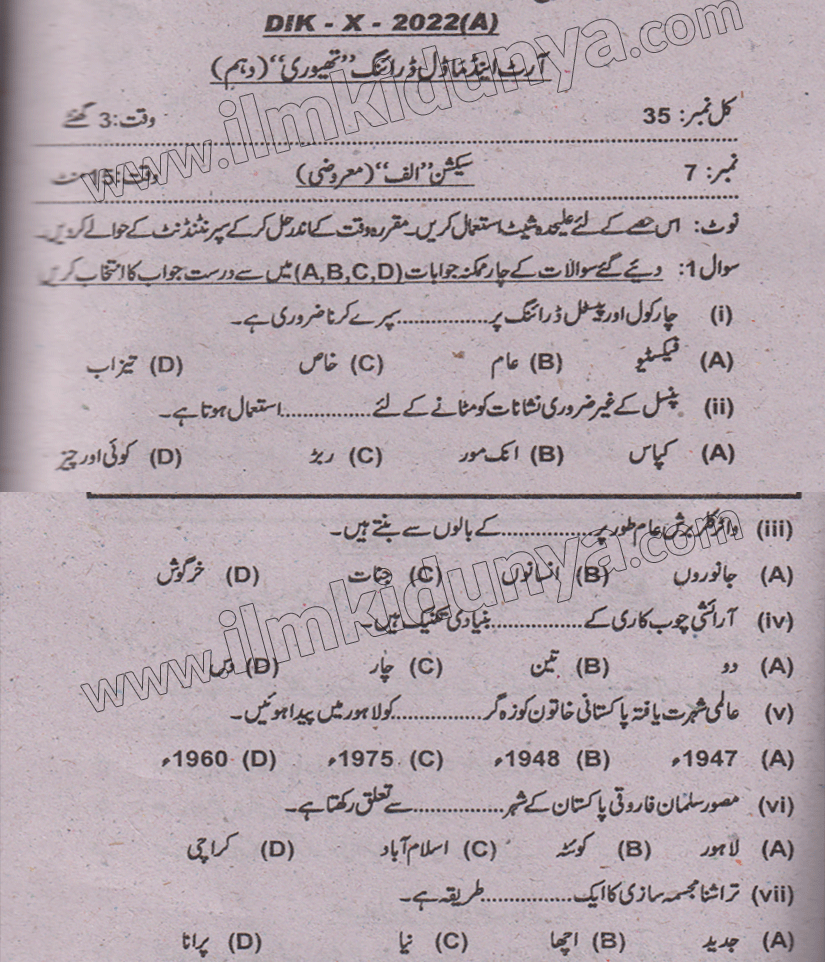 DIK - X - 2022(A)
آرٹ اینڈ ماڈل ڈرائنگ ”تھیوری“ (دہم)
کل نمبر: 35 وقت: 3 گھنٹے
نمبر: 7 سیکشن ”الف“ (معروضی) وقت: 15 منٹ
نوٹ: اس حصے کے لئے علیحدہ شیٹ استعمال کریں۔ مقررہ وقت کے اندر حل کر کے سپرنٹنڈنٹ کے حوالے کر دیں۔
سوال 1: دیئے گئے سوالات کے چار ممکنہ جوابات (A,B,C,D) میں سے درست جواب کا انتخاب کریں
(i) چارکول اور پیسٹل ڈرائنگ پر ............... سپرے کرنا ضروری ہے۔
(A) فیکسٹیو (B) عام (C) خاص (D) تیزاب
(ii) پنسل کے غیر ضروری نشانات کو مٹانے کے لئے ............... استعمال ہوتا ہے۔
(A) کپاس (B) انک مور (C) ربڑ (D) کوئی اور چیز
(iii) واٹر کلر برش عام طور پر ............... کے بالوں سے بنتے ہیں۔
(A) جانوروں (B) انسانوں (C) جنات (D) خرگوش
(iv) آرائشی چوب کاری کے ............... بنیادی تکنیک ہیں۔
(A) دو (B) تین (C) چار (D) دس
(v) عالمی شہرت یافتہ پاکستانی خاتون کوزہ گر ............... کو لاہور میں پیدا ہوئیں۔
(A) 1947ء (B) 1948ء (C) 1975ء (D) 1960ء
(vi) مصور سلمان فاروقی پاکستان کے شہر ............... سے تعلق رکھتا ہے۔
(A) لاہور (B) کوئٹہ (C) اسلام آباد (D) کراچی
(vii) تراشنا مجسمہ سازی کا ایک ............... طریقہ ہے۔
(A) جدید (B) اچھا (C) نیا (D) پرانا
www.ilmkidunya.com
www.ilmkidunya.com